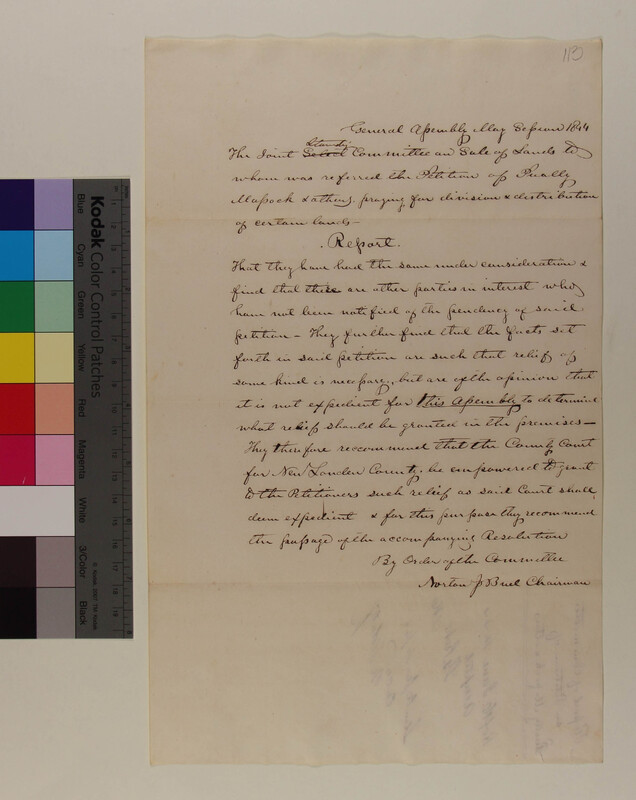 113
General Assembly May Session 1844
The Joint Standg Select Committee on Sale of Lands to
whom was referred the Petition of Pually
Massock & others, praying for division & distribution
of certain lands—
Report.
That they have had the same under consideration &
find that there are other parties in interest who
have not been notified of the pendency of said
petition — They further find that the facts set
forth in said petition are such that relief of
some kind is necessary, but are of the opinion that
it is not expedient for this Assembly to determine
what relief should be granted in the premises—
They therefore reccommend that the County Court
for New London County, be empowered to grant
to the Petitioners such relief as said Court shall
deem expedient & for this purpose they recommend
the passage of the accompanying Resolution
By Order of the Committee
Norton J Buel Chairman
Kodak Color Control Patches
Blue Cyan Green Yellow Red Magenta White 3/Color Black